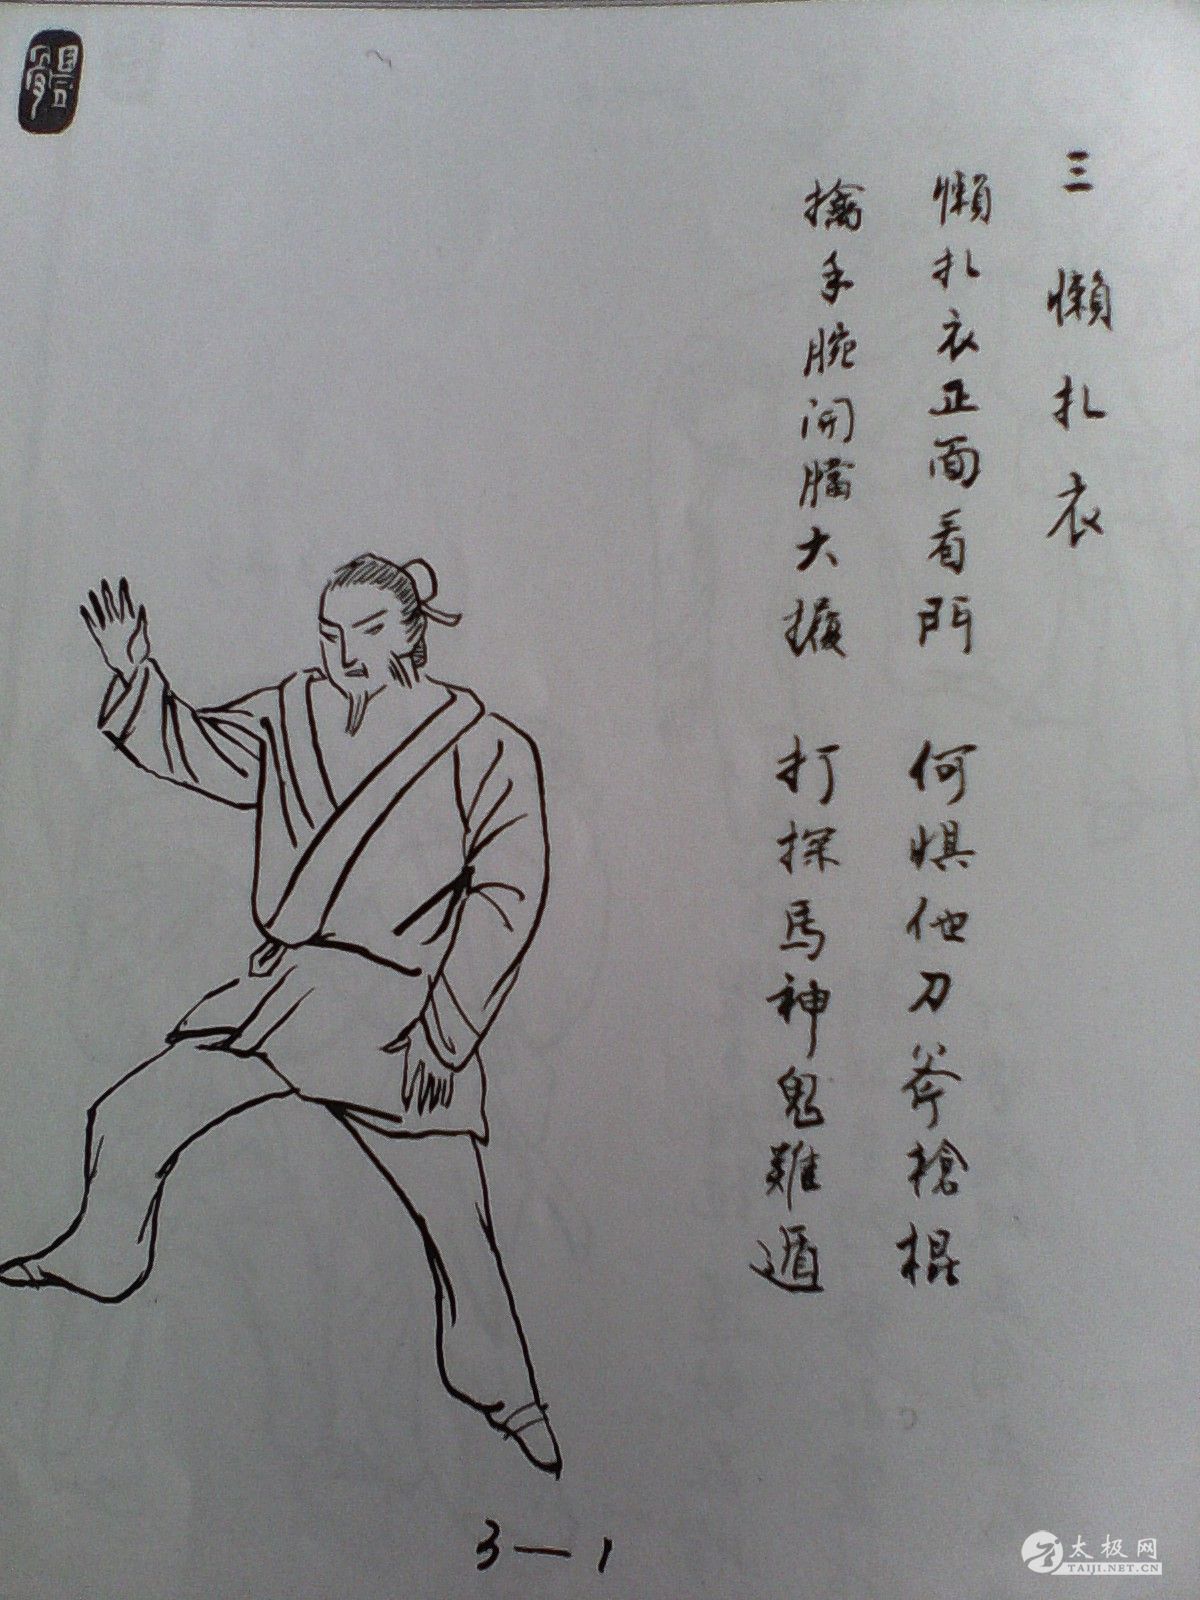 三 懶扎衣
懶扎衣正面看門 何惧他刀斧槍棍
擒手腕開膛大 打探馬神鬼難遁
3—1
太极网
TAIJI.NET.CN